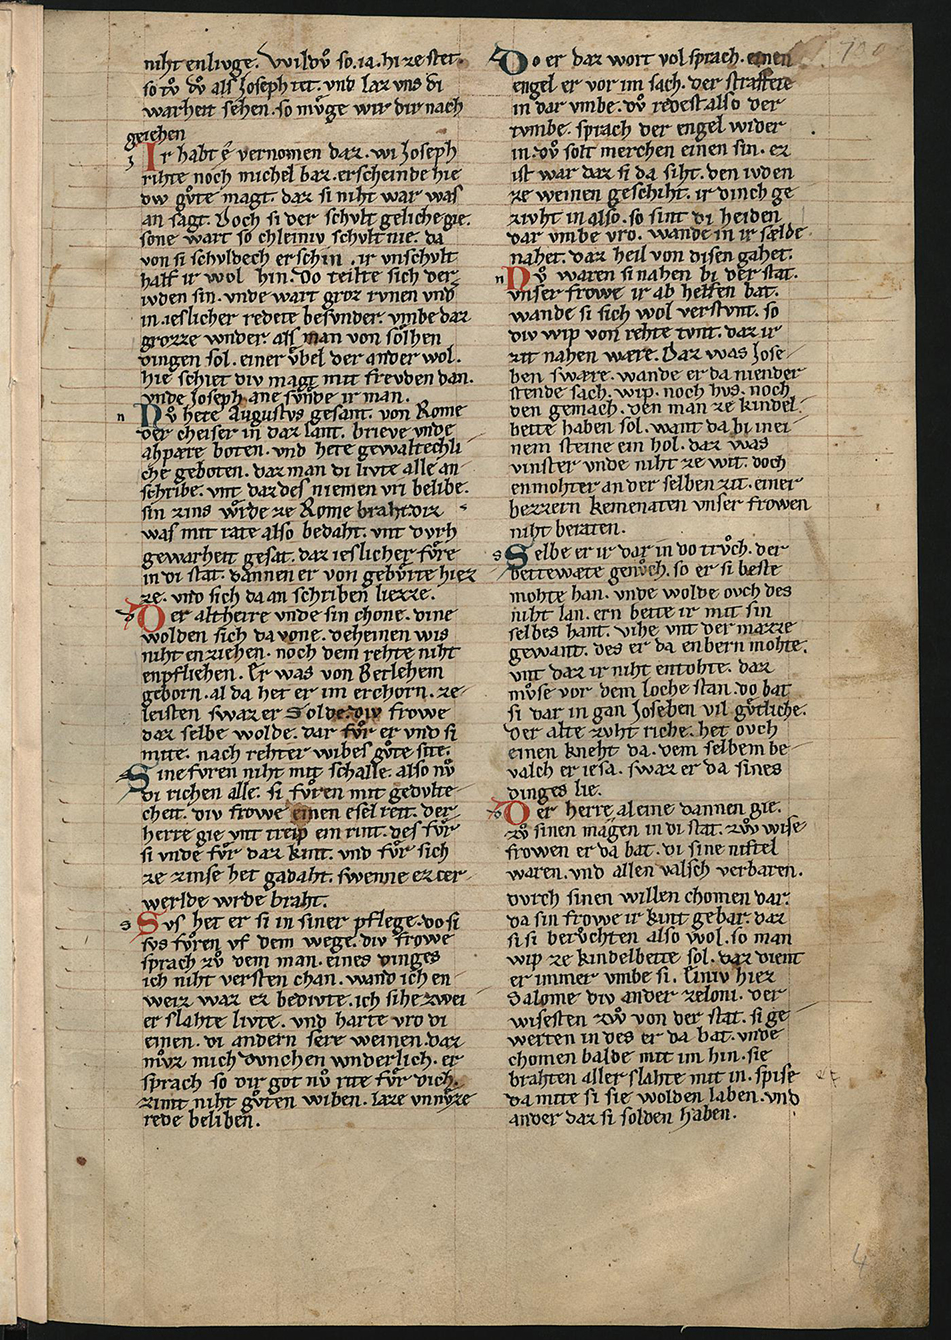 niht enliuge. Wildv̊ so. ia. hi ze stet.
so tv̊ dv̊ als Joseph tet. vnd laz vns di
warheit sehen. so mv̊ge wir dir nach
geiehen
Ir habt é vernomen daz. wi Joseph
rihte noch michel baz. erscheinde hie
div gv̊te magt. daz si niht war was
an sagt. Doch si der schvlt geliche gie.
sone wart so chleiniv schvlt nie. da
von si schvldech erschin. ir vnschvlt
half ir wol hin. Do teilte sich der
ivden sin. vnde wart groz rvnen vnd
in. ieslicher redete besvnder. vmbe daz
grozze wnder. als man von solhen
dingen sol. einer v̊bel der ander wol.
hie schiet div magt mit frevden dan.
vnde Joseph ane svnde ir man.
Nv̊ hete Augustvs gesant. von Rome
der cheiser in daz lant. brieve vnde
ahpære boten. vnd hete gewaltechli
che geboten. daz man di livte alle an
schribe. vnt daz des niemen vri belibe.
sin zins wͦrde ze Rome braht. diz
was mit rate also bedaht. vnt dvrh
gewarheit gesat. daz ieslicher fv̊re
in di stat. dannen er von gebv̊rte hiez
ze. vnd sich da an schriben liezze.
Der altherre vnde sin chone. dine
wolden sich da vone. deheinen wis
niht enziehen. noch dem rehte niht
enpfliehen. Er was von Betlehem
geborn. al da het er im erchorn. ze
leisten swaz er Solde. div frowe
daz selbe wolde. dar fv̊r er vnd si
mite. nach rehter wibes gv̊te site.
Sine fvren niht mit schalle. also nv̊
di richen alle. si fv̊ren mit gedvlte
cheit. div frowe einen esel reit. der
herre gie vnt treip ein rint. des fv̊r
si vnde fv̊r daz kint. vnd fv̊r sich
ze zinse het gadaht. swenne ez zer
werlde wrde braht.
Svs het er si in siner pflege. do si
svs fv̊ren vf dem wege. div frowe
sprach zv̊ dem man. eines dinges
ich niht versten chan. wand ich en
weiz waz ez bedivte. ich sihe zwei
er slahte livte. vnd harte vro di
einen. di andern sere weinen. daz
mv̊z mich dvnchen wnderlich. er
sprach so dir got nv̊ rite fv̊r dich.
zimt niht gv̊ten wiben. laze vnnvze
rede beliben.
Do er daz wort vol sprach. einen
engel er vor im sach. der straffete
in dar vmbe. dv̊ redest also der
tvmbe. sprach der engel wider
in. dv̊ solt merchen einen sin. ez
ist war daz si da siht. den ivden
ze weinen geschiht. ir dinch ge
zivht in also. so sint di heiden
dar vmbe vro. wande in ir sælde
nahet. daz heil von disen gahet.
Nv̊ waren si nahen bi der stat.
vnser frowe ir ab helfen bat.
wande si sich wol verstvnt. so
div wip von rehte tvnt. daz ir
zit nahen wære. Daz was Jose
ben swære. wande er da niender
stende sach. wip. noch hvs. noch
den gemach. den man ze kindel
bette haben sol. want da bi in ei
nem steine ein hol. daz was
vinster vnde niht ze wit. doch
enmohter an der selben zit. einer
bezzern kemenaten vnser frowen
niht beraten.
Selbe er ir dar in do trv̊ch. der
bettewæte genv̊ch. so er si beste
mohte han. vnde wolde ovch des
niht lan. ern bette ir mit sin
selbes hant. vihe vnt der mazze
gewant. des er da enbern mohte.
vnt daz ir niht entohte. daz
mv̊se vor dem loche stan. do bat
si dar in gan Joseben vil gv̊tliche.
Der alte zvht riche. het ovch
einen kneht da. dem selbem be
valch er iesa. swaz er da sines
dinges lie.
Der herre, al eine dannen gie.
zv̊ sinen magen in di stat. zwv̊ wise
frowen er da bat. di sine niftel
waren. vnd allen valsch verbaren.
dvrch sinen willen chomen dar.
da sin frowe ir kint gebar. daz
si si berv̊chten also wol. so man
wip ze kindelbette sol. daz dient
er immer vmbe si. Einiv hiez
Salome div ander zeloni. der
wisesten zwv̊ von der stat. si ge
werten in des er da bat. vnde
chomen balde mit im hin. sie
brahten aller slahte mit in. spise
da mite si sie wolden laben. vnd
ander daz si solden haben.